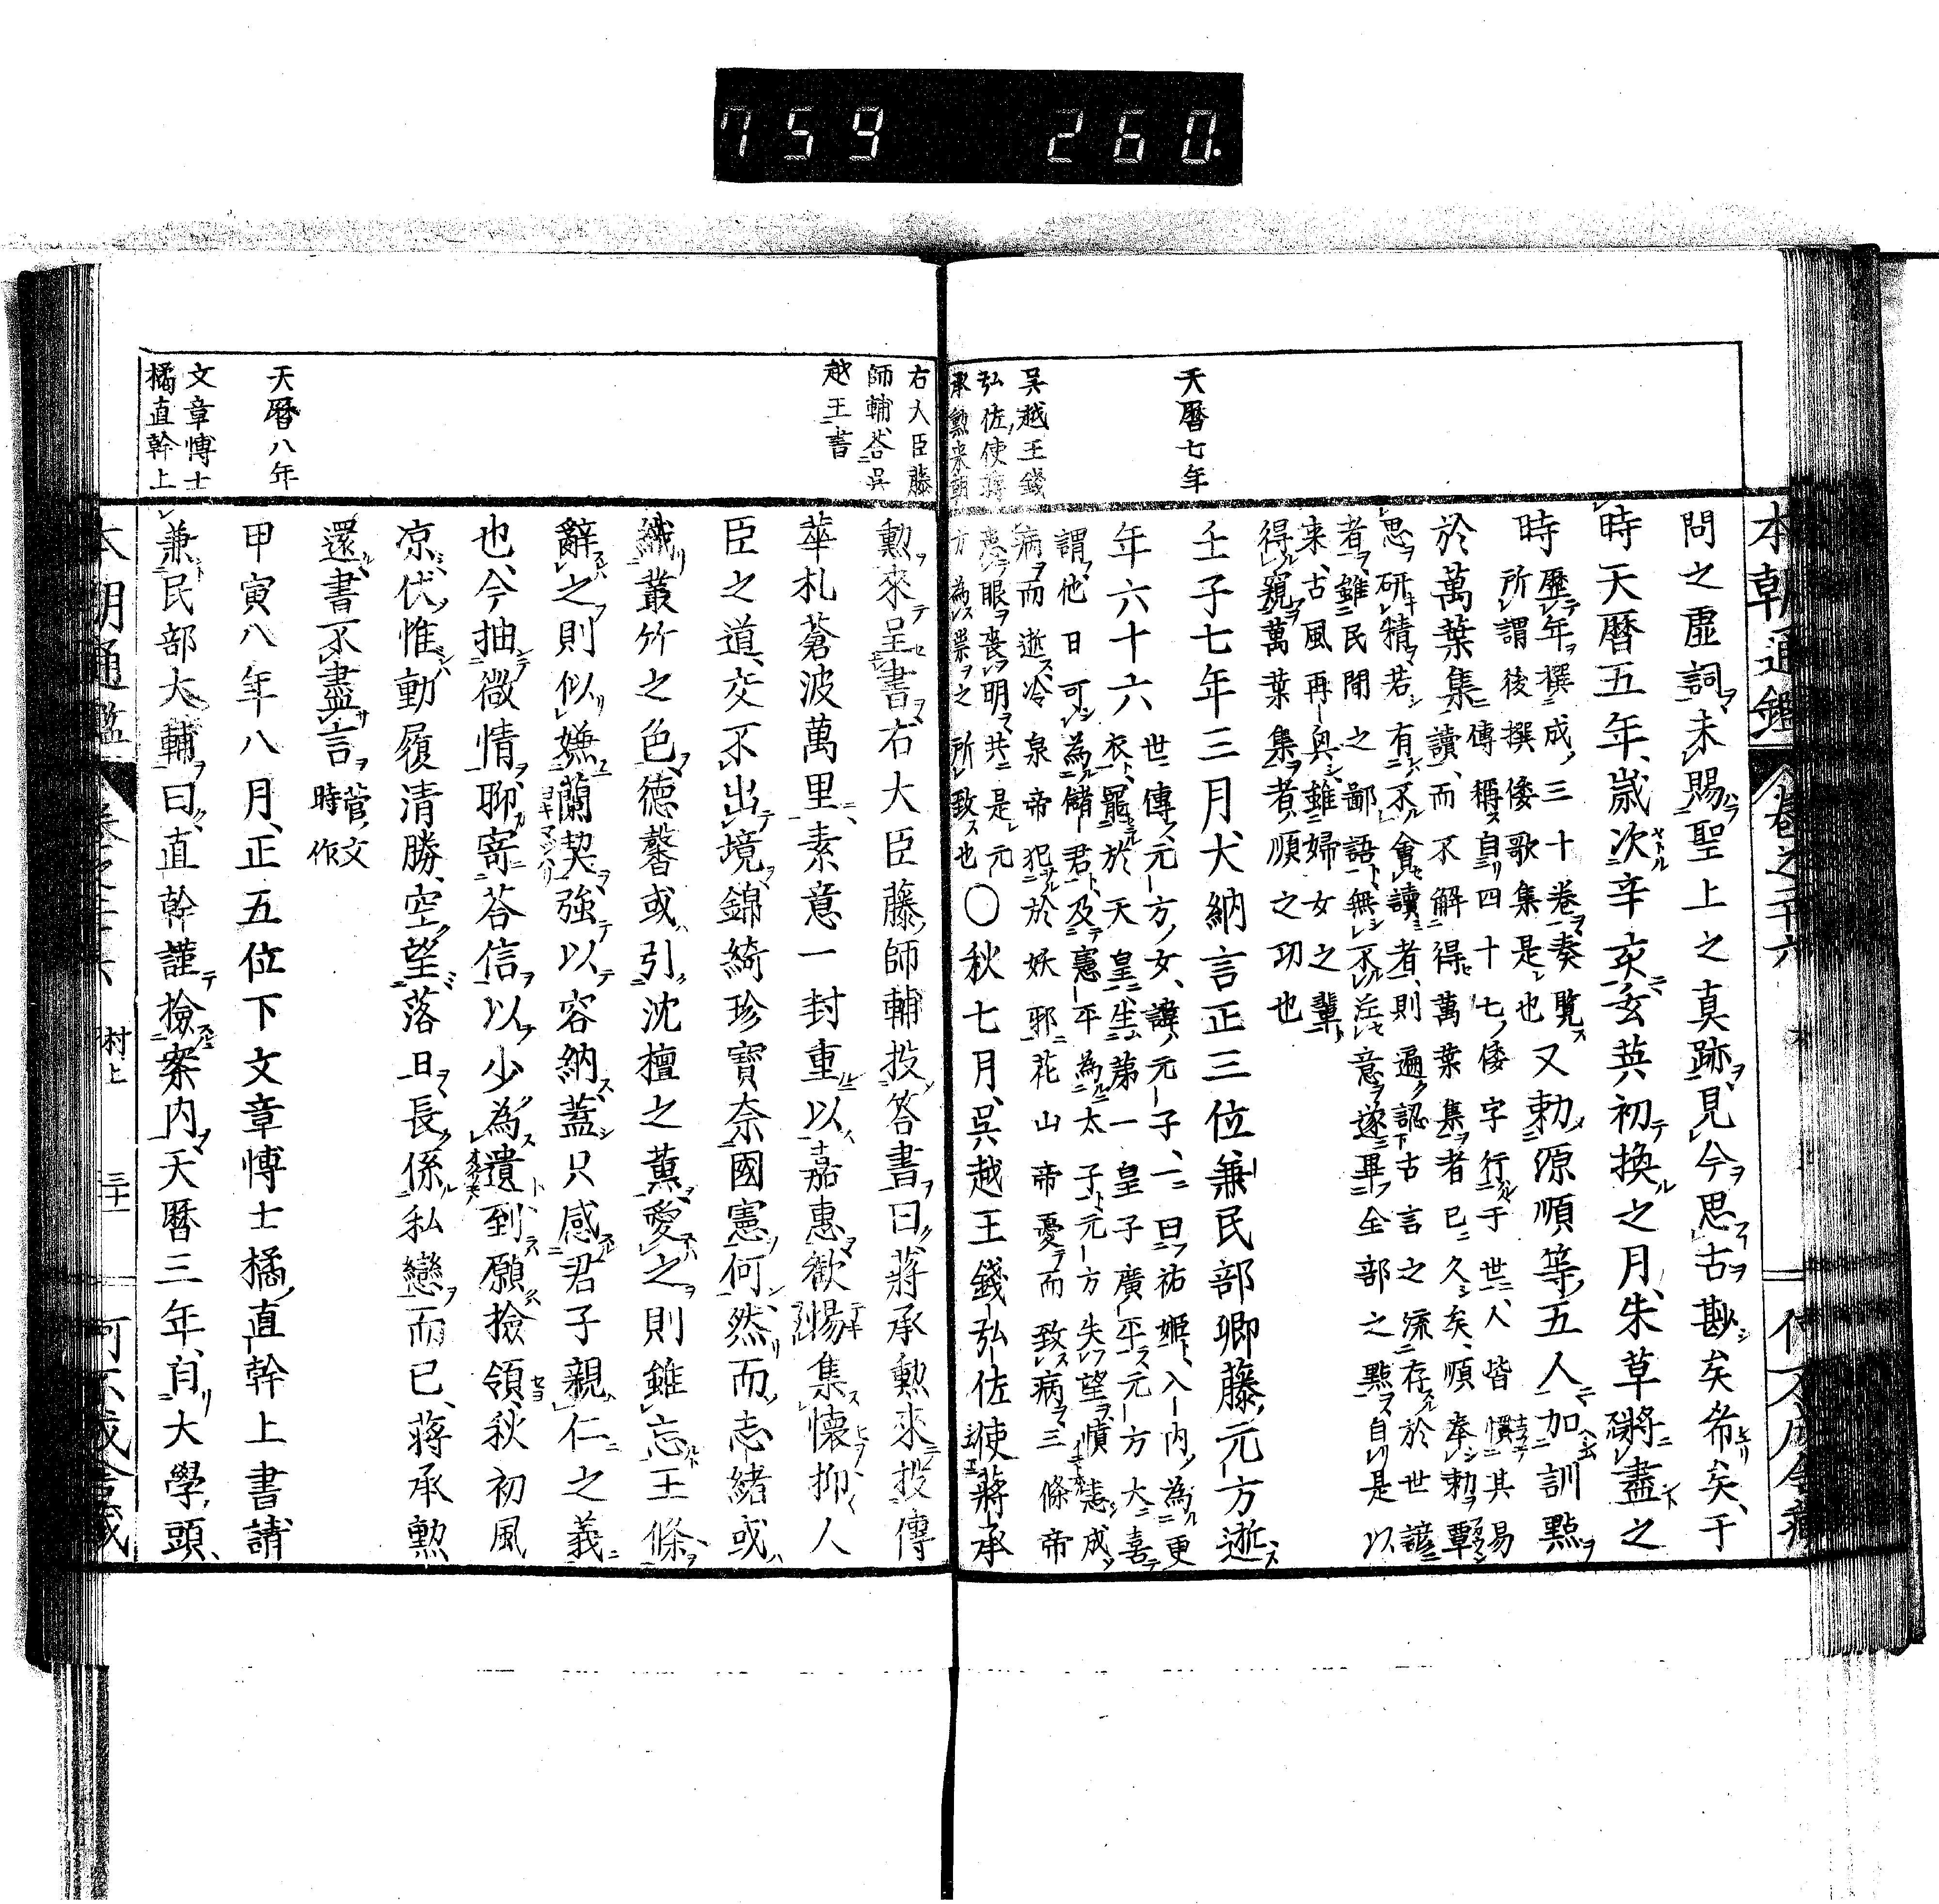 759 260.
本朝通鑑 卷之二十六
天暦七年
吳越王錢
弘佐使蔣
承勲来朝
問之虛詞未賜聖上之真跡見今思古尠矣希矣于
時天暦五年歳次辛亥玄英初換之月朱草將盡之
時歷年撰成三十卷奏覧
所謂後撰倭歌集是也
又勅源順等五人加訓點
於萬葉集
傳稱自四十七倭字行于世人皆慣其易
讀而不解得萬葉集者已久矣順奉勅覃
思研精若有不會讀者則遍認古言之流存於世諺
者雖民間之鄙語無不注意遂畢全部之點自是以
来古風再興雖婦女之輩
得窺萬葉集者順之功也
壬子七年三月大納言正三位兼民部卿藤元方逝
年六十六
世傳元方女諱元子一曰祐姬入内為更
衣罷於天皇生第一皇子廣平元方大喜
謂他日可為儲君及憲平為太子元方失望憤恚成
病而逝冷泉帝犯於妖邪花山帝憂而致病三條帝
患眼喪明共是元
方為祟之所致也
○秋七月吳越王錢弘佐使蔣承
右大臣藤
師輔荅吳
越王書
天暦八年
文章博士
橘直幹上
勲來呈書右大臣藤師輔投答書曰蔣承勲來投傳
華札蒼波萬里素意一封重以嘉惠歓惕集懷抑人
臣之道交不出境錦綺珍寶奈國憲何然而志緒或
織叢竹之色德馨或引沈檀之薫愛之則雖忘玉條
辭之則似嫌蘭契強以容納蓋只感君子親仁之義
也今抽微情聊寄荅信以少為遺到願撿領秋初風
凉伏惟動履清勝空望落日長係私戀而已蔣承勲
還書不盡言
菅文
時作
甲寅八年八月正五位下文章博士橘直幹上書請
兼民部大輔曰直幹謹撿案内天暦三年自大學頭
本朝通鑑 村上 三十一